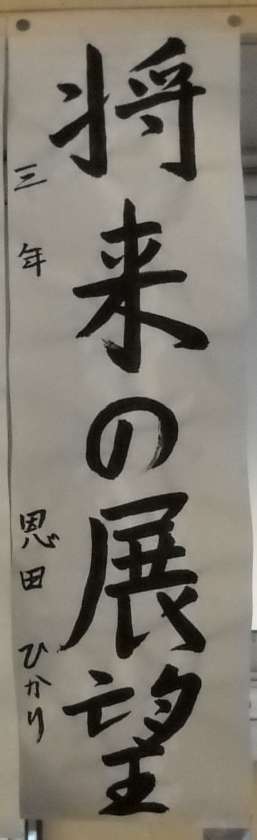 将来の展望
三年 恩田 ひかり